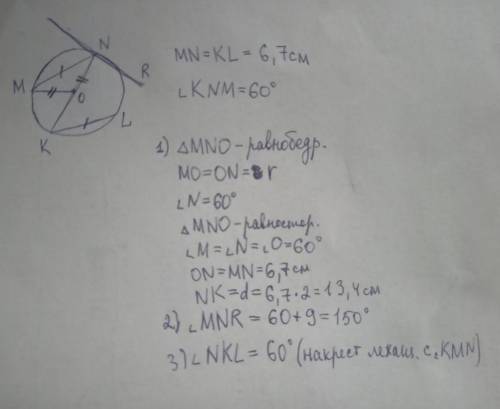 N
M
O
R
K
L
MN=KL=6,7см
∠KNM=60°
1) △MNO-равнобедр.
MO=ON=r
∠N=60°
△MNO-равностор.
∠M=∠N=∠O=60°
ON=MN=6,7см
NK=d=6,7·2=13,4см
2) ∠MNR=60+9=150°
3) ∠NKL=60° (накрест лежащ. с ∠KMN)